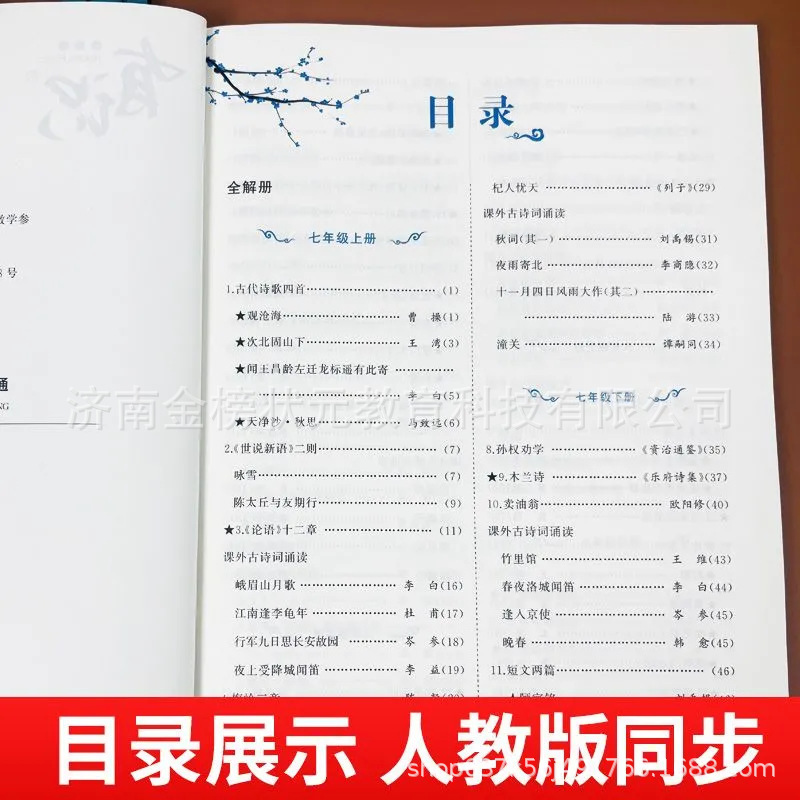 目录
全解册
七年级上册
1.古代诗歌四首 (1)
★观沧海 曹 操(1)
★次北固山下 王 湾(3)
★闻王昌龄左迁龙标遥有此寄
李 白(5)
★天净沙·秋思 马致远(6)
2.《世说新语》二则 (7)
咏雪 (7)
陈太丘与友期行 (9)
★3.《论语》十二章 (11)
课外古诗词诵读
峨眉山月歌 李 白(16)
江南逢李龟年 杜 甫(17)
行军九日思长安故园 岑 参(18)
夜上受降城闻笛 李 益(19)
杞人忧天 《列子》(29)
课外古诗词诵读
秋词(其一) 刘禹锡(31)
夜雨寄北 李商隐(32)
十一月四日风雨大作(其二)
陆 游(33)
潼关 谭嗣同(34)
七年级下册
8.孙权劝学 《资治通鉴》(35)
★9.木兰诗 《乐府诗集》(37)
10.卖油翁 欧阳修(40)
课外古诗词诵读
竹里馆 王 维(43)
春夜洛城闻笛 李 白(44)
逢入京使 岑 参(45)
晚春 韩 愈(45)
11.短文两篇 (46)
学参
8号
通
NG
济南金榜状元教育科技有限公司
目录展示 人教版同步